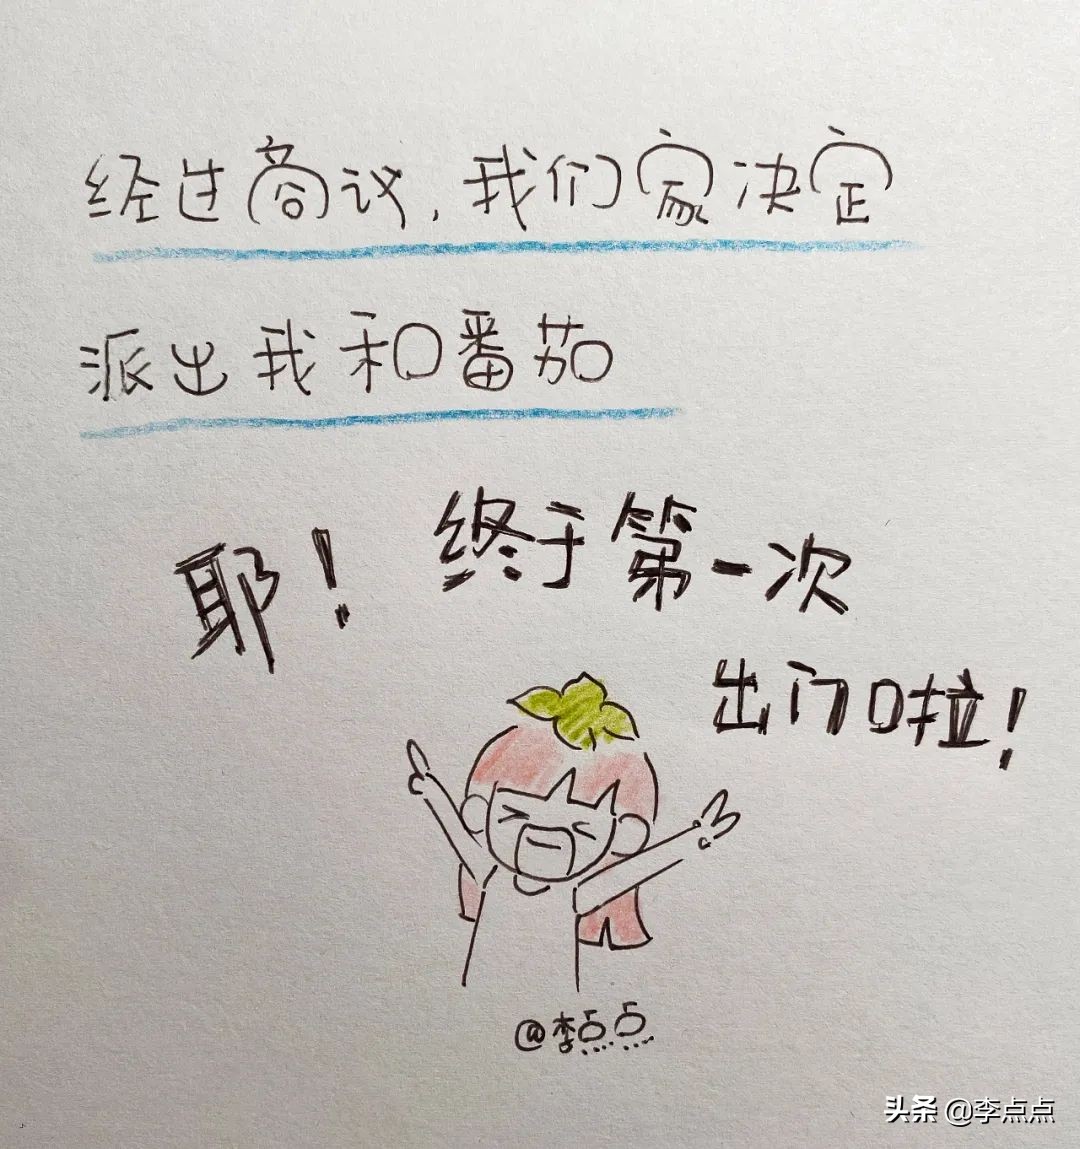 经过商议,我们家决定
派出我和番茄
耶! 终于第一次
出门啦!
@李点点
头条 @李点点